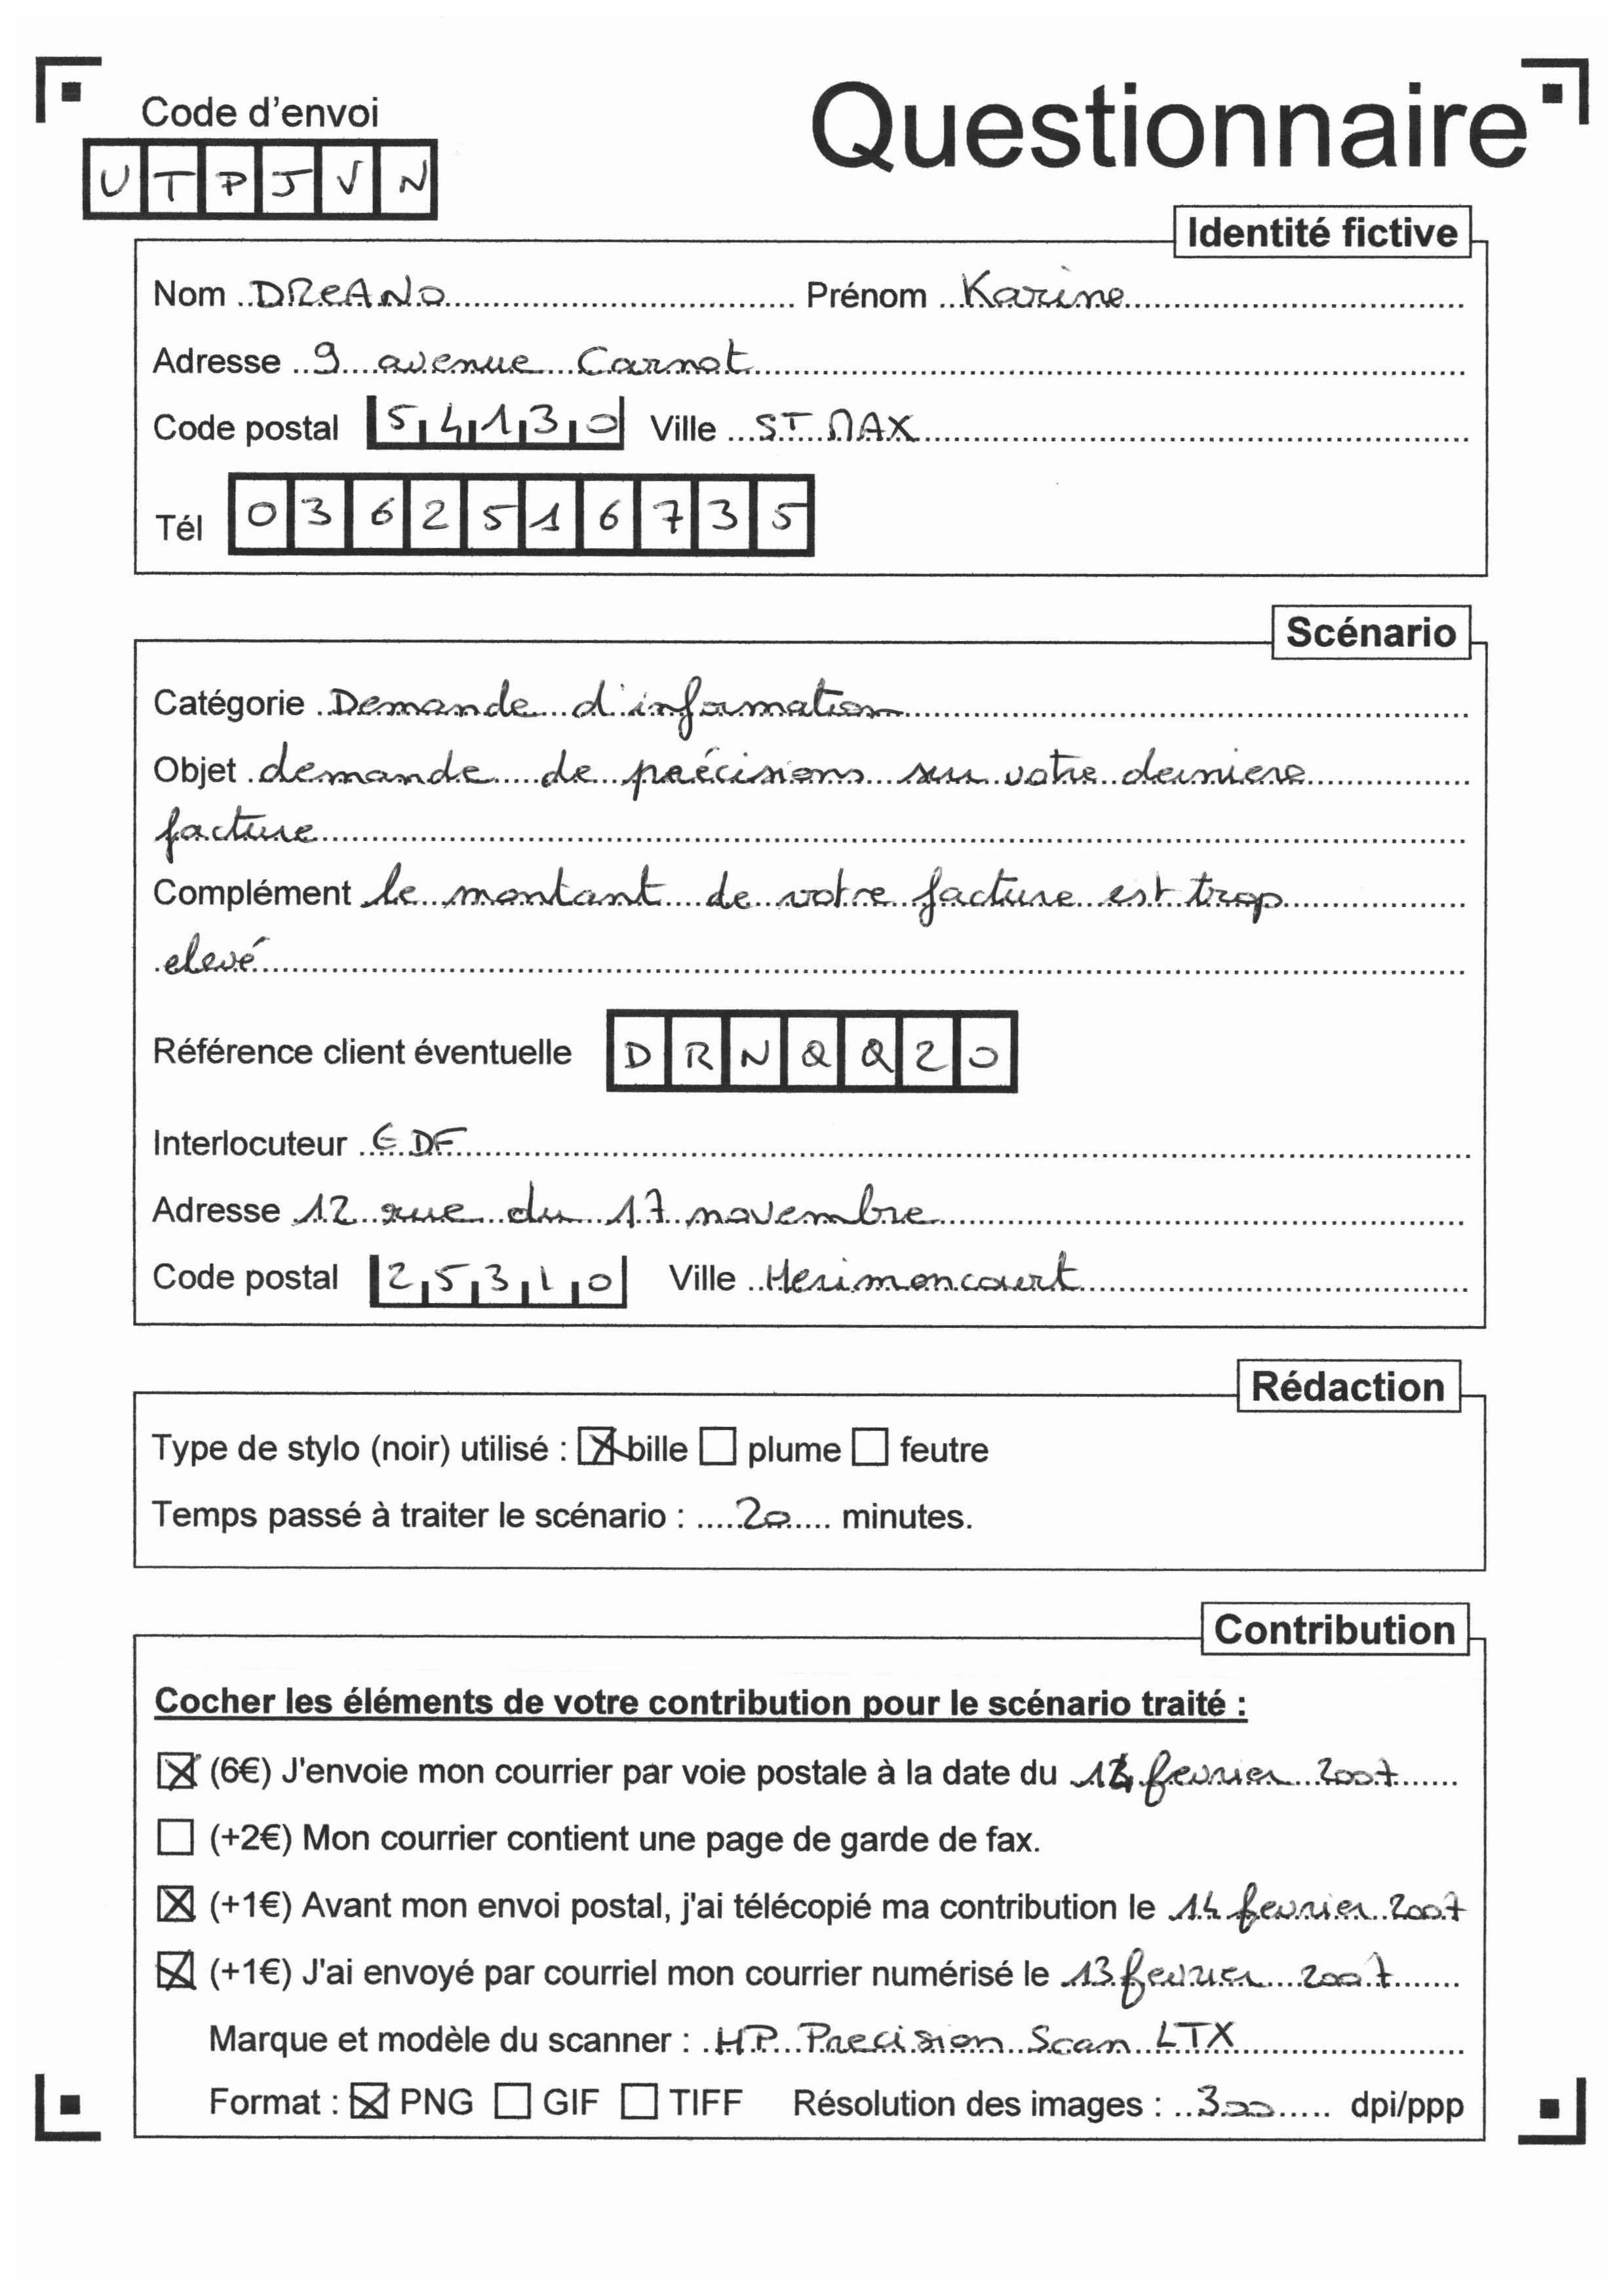 Code d'envoi
Questionnaire
UTPJVN
Identité fictive
Nom DREANO Prénom Karine
Adresse 9 avenue Carnot
Code postal 54130 Ville ST MAX
Tél 0362516735
Scénario
Catégorie Demande d'information
Objet demande de précisions sur votre derniere
facture
Complément le montant de votre facture est trop
elevé
Référence client éventuelle DRNQQ20
Interlocuteur EDF
Adresse 12 rue du 17 novembre
Code postal 25310 Ville Herimoncourt
Rédaction
Type de stylo (noir) utilisé : bille plume feutre
Temps passé à traiter le scénario : 20 minutes.
Contribution
Cocher les éléments de votre contribution pour le scénario traité :
(6€) J'envoie mon courrier par voie postale à la date du fevrier 2007
(+2€) Mon courrier contient une page de garde de fax.
(+1€) Avant mon envoi postal, j'ai télécopié ma contribution le 14 fevrier 2007
(+1€) J'ai envoyé par courriel mon courrier numérisé le 13 fevrier 2007
Marque et modèle du scanner : HP Precision Scan LTX
Format : PNG GIF TIFF Résolution des images : 300 dpi/ppp